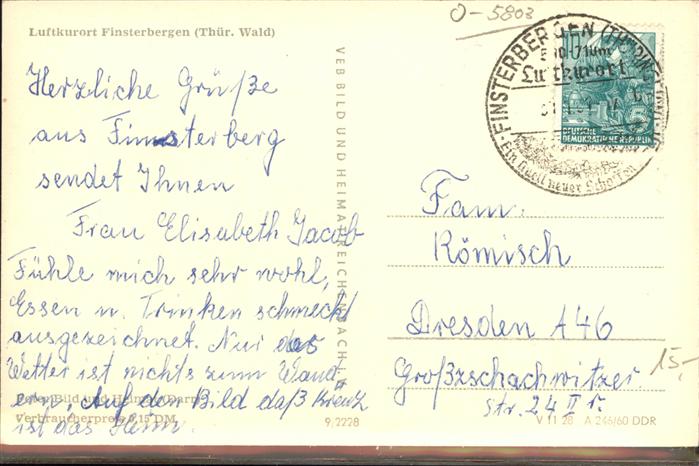 O-5803
Luftkurort Finsterbergen (Thür. Wald)
Herzliche Grüße
aus Finsterberg
sendet Ihnen
Frau Elisabeth Jacob
Fühle mich sehr wohl,
Essen u. Trinken schmeckt
ausgezeichnet. Nur das
Wetter ist nichts zum Wand
Auf der Bild daß Kreuz
ist das Heim.
Verbraucherpreis 0,15 DM
9/2228
VEB BILD UND HEIMAT REICHENBACH i. V.
FINSTERBERGEN (THÜRINGER WALD)
500-710m
Luftkurort
Ein Quell neuer Schaffen
DEUTSCHE
DEMOKRATISCHE REPUBLIK
5
Fam.
Römisch
Dresden A 46
Großzschachwitzer
Str. 24 II r.
15,-
V 11 28 A 246/60 DDR